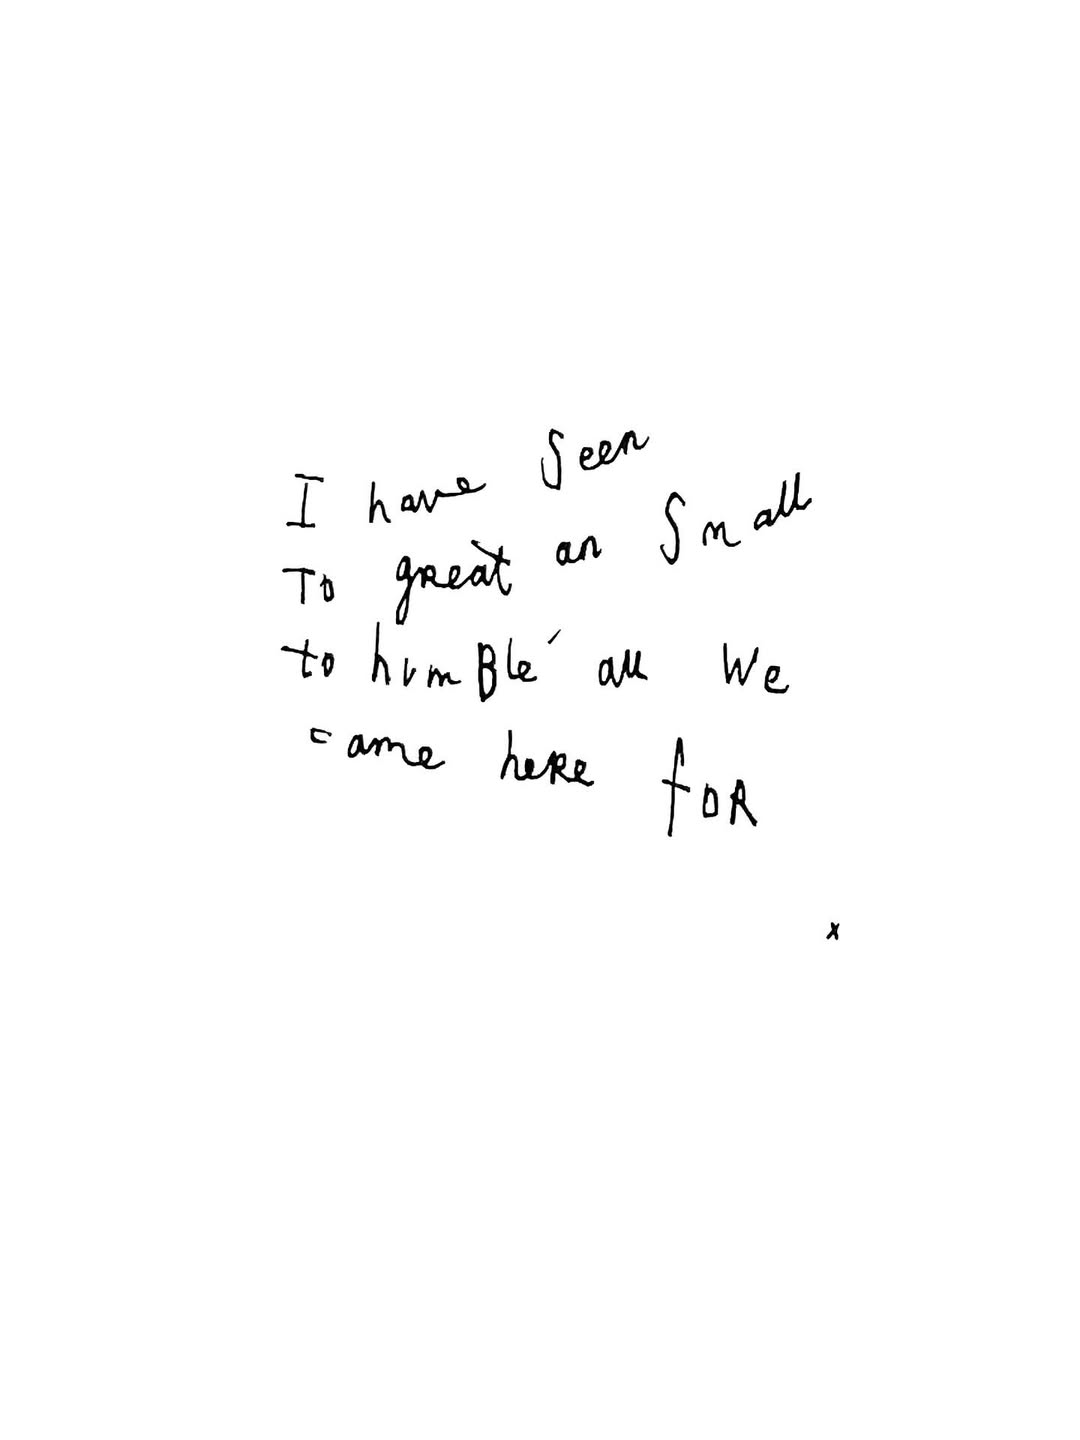 I have seen
To great an small
to humBle´ all we
came here foR
x